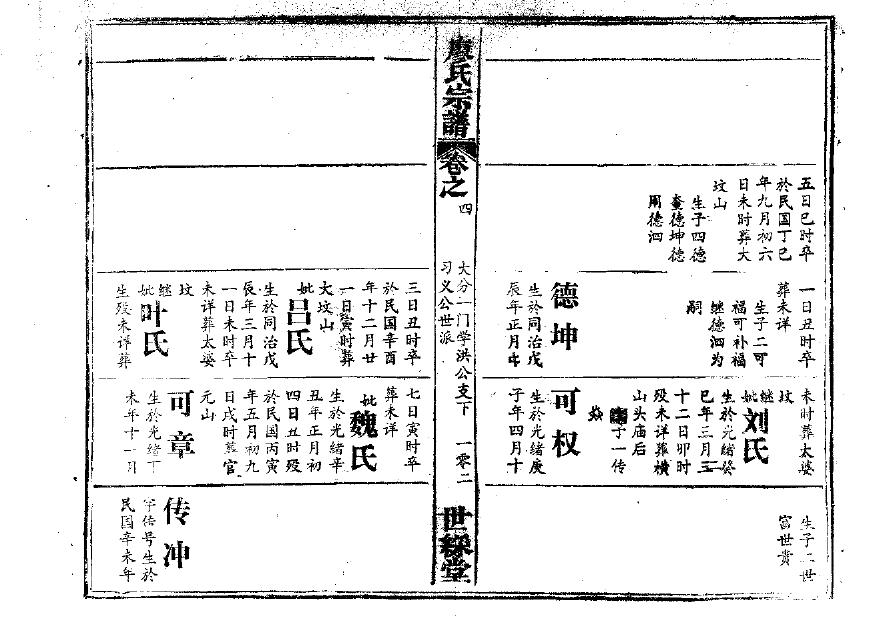 五日巳时卒
於民国丁巳
年九月初六
日未时葬大
坟山
生子四德
奎德坤德
周德泗
一日丑时卒
葬未详
生子二可
福可补福
继德泗为
嗣
德坤
生於同治戊
辰年正月廿
未时葬太婆
坟
继妣
刘氏
生於光緒癸
巳年三月三
十二日卯时
殁未详葬横
山头庙后
子一传
焱
可权
生於光緒庚
子年四月十
生子二世
富世贵
廖氏宗譜
卷之
四
大分一门学洪公支下
习义公世派
一零二
世綵堂
三日丑时卒
於民国辛酉
年十二月廿
一日寅时葬
大坟山
妣
吕氏
生於同治戊
辰年三月十
一日未时卒
未详葬太婆
坟
继妣
叶氏
生殁未详葬
七日寅时卒
葬未详
妣
魏氏
生於光緒辛
丑年正月初
四日丑时殁
於民国丙寅
年五月初九
日戌时葬官
元山
可章
生於光緒丁
未年十一月
传冲
字传号生於
民国辛未年